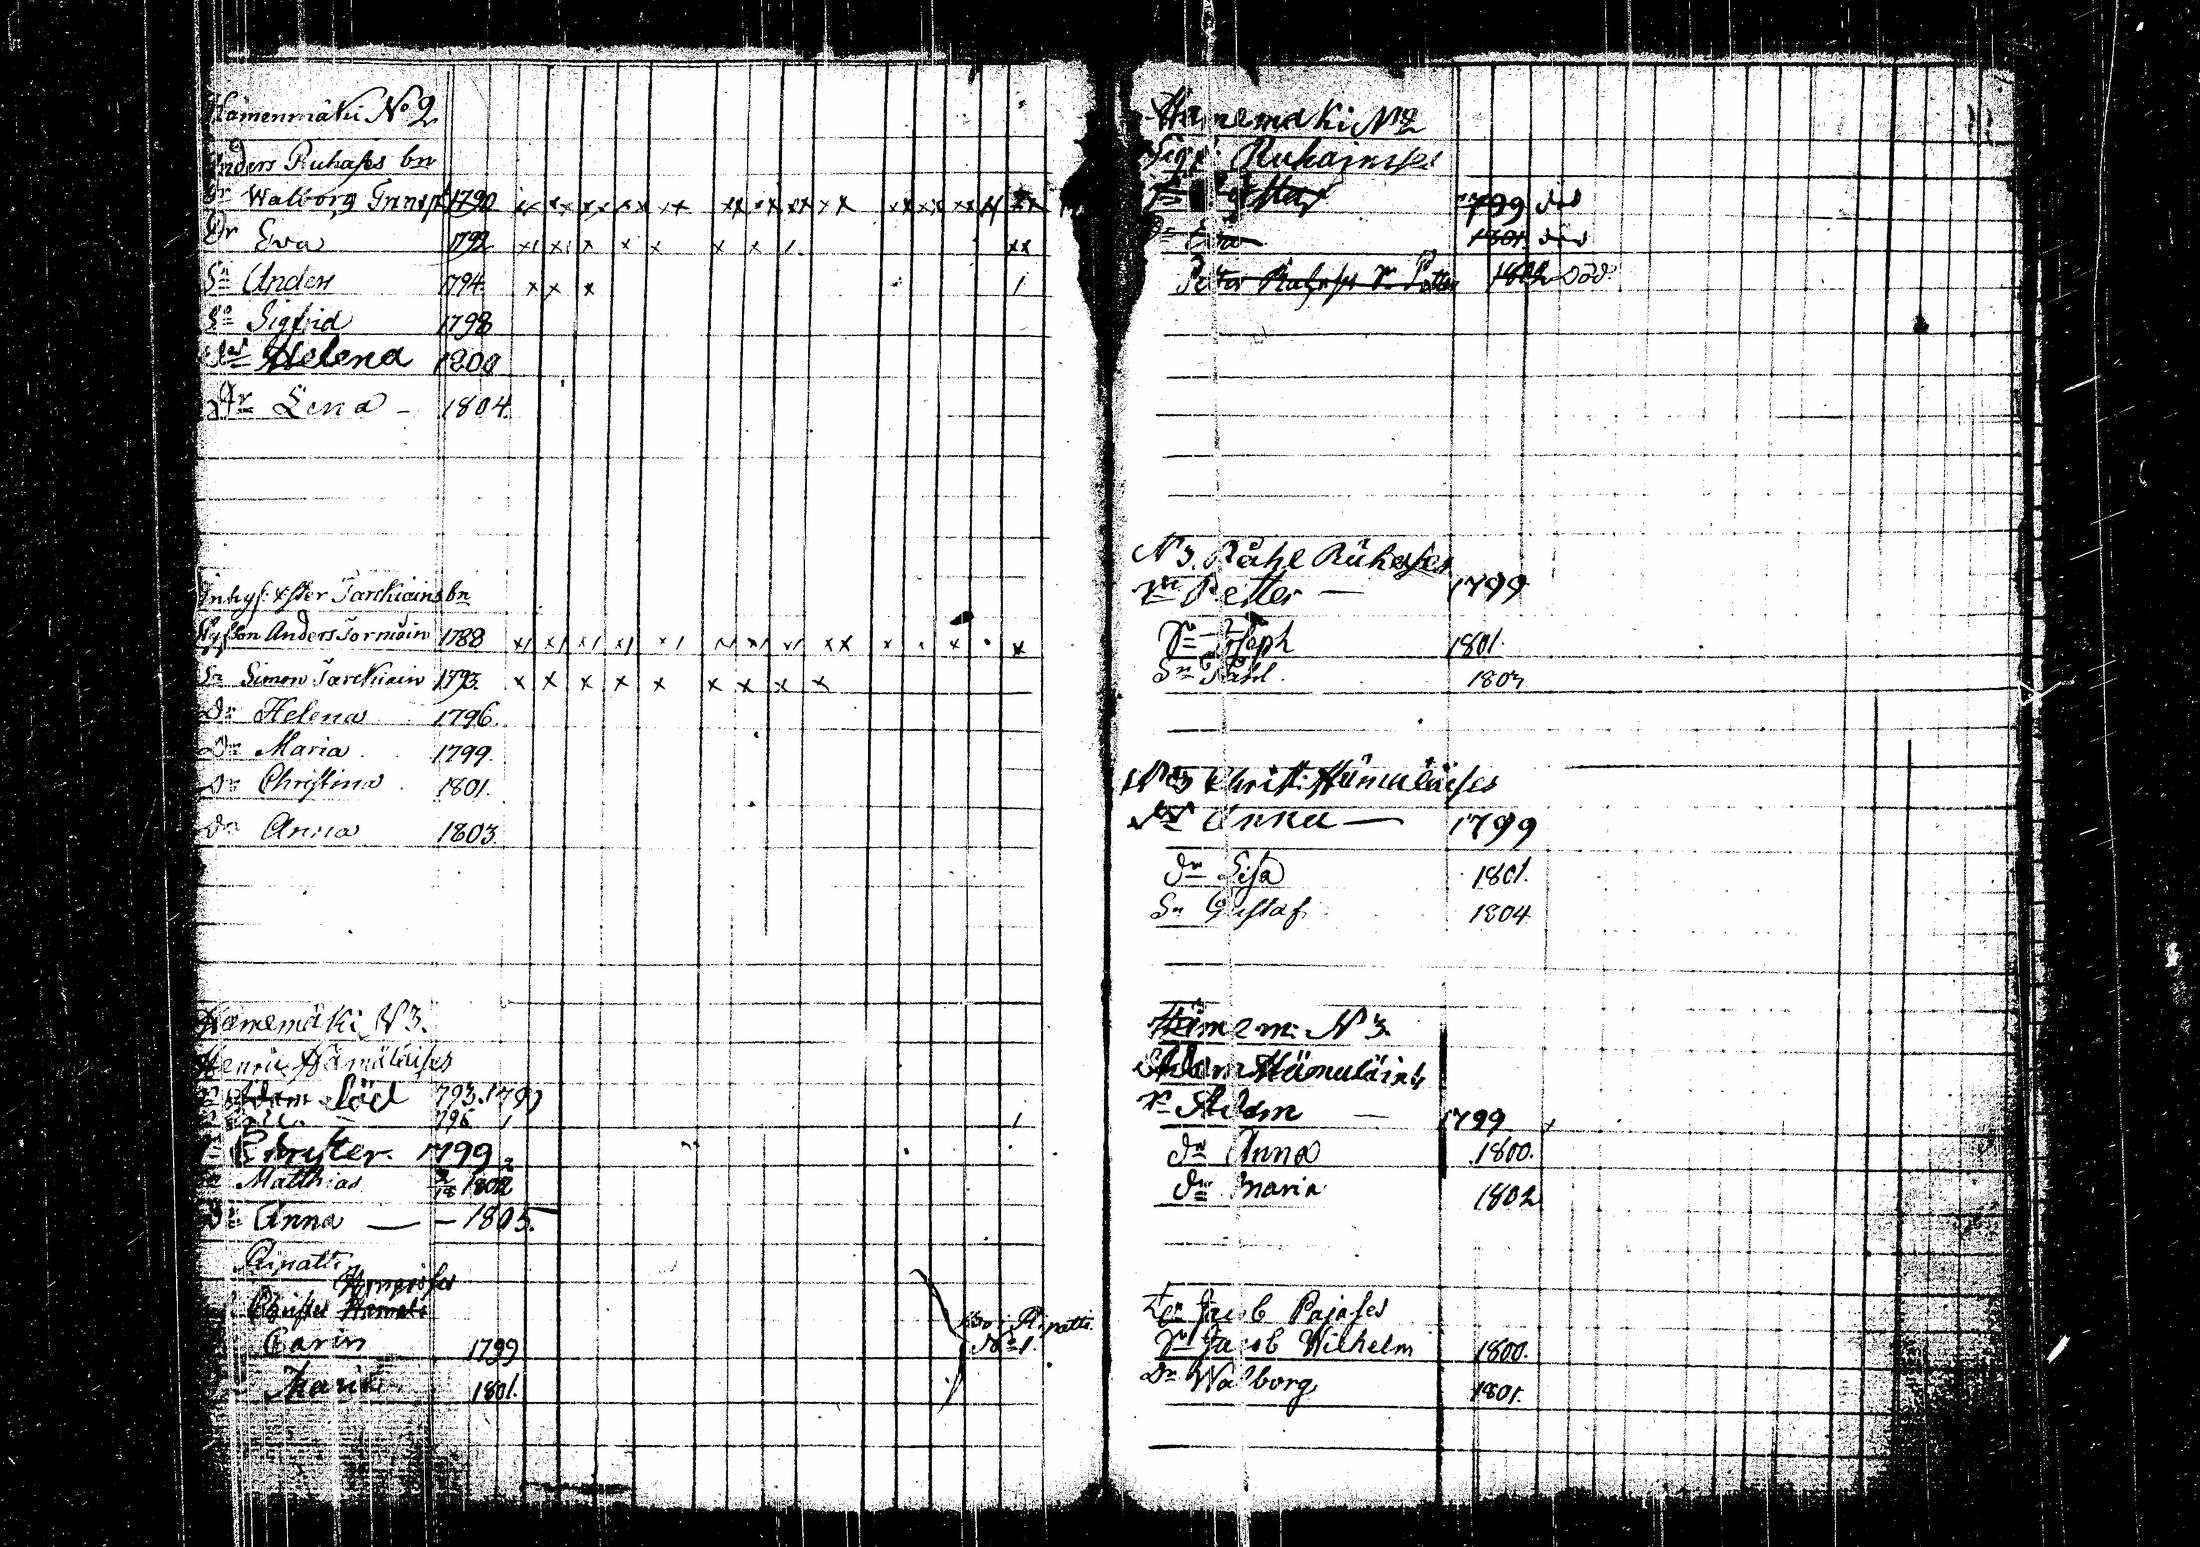 Hämenmäki No 2
Anders Ruhases bn
Dr Walborg 1790
Dr Eva 1792
Sn Anders 1794
Sn Sigfrid 1798
Helena 1800
Dr Lena - 1804
Inhys: Tarckiains bn
Anders Tormäin 1788
Sn Simon Tarckiain 1793
Dr Helena 1796
Dr Maria 1799
Dr Christina 1801
Dr Anna 1803
Hämemäki N 3.
Henric Hämäläises
Adam död 793. 1799
1795
Christer 1799
Matthias 1802
Dr Anna — 1805
Ripatti
Christer
Carin 1799
1801
Ripatti
No 1.
Hämemäki No 2
Sigf: Ruhainses
1799 död
1801 död
Petter 1802 död
N 3. Påhl Ruhases
Petter — 1799
Joseph 1801
Sn Påhl 1803
N 3 Christ: Hämäläises
Anna — 1799
dr Lisa 1801
Sn Gustaf 1804
Hämem: N 3.
Adam Hämäläin
Adam — 1799
dr Anna 1800
dr Maria 1802
Jacob Pajases
Jacob Wilhelm 1800
Dr Walborg 1801